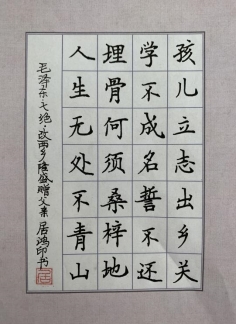 孩儿立志出乡关
学不成名誓不还
埋骨何须桑梓地
人生无处不青山
毛泽东七绝·改西乡隆盛赠父亲 居鸿印书